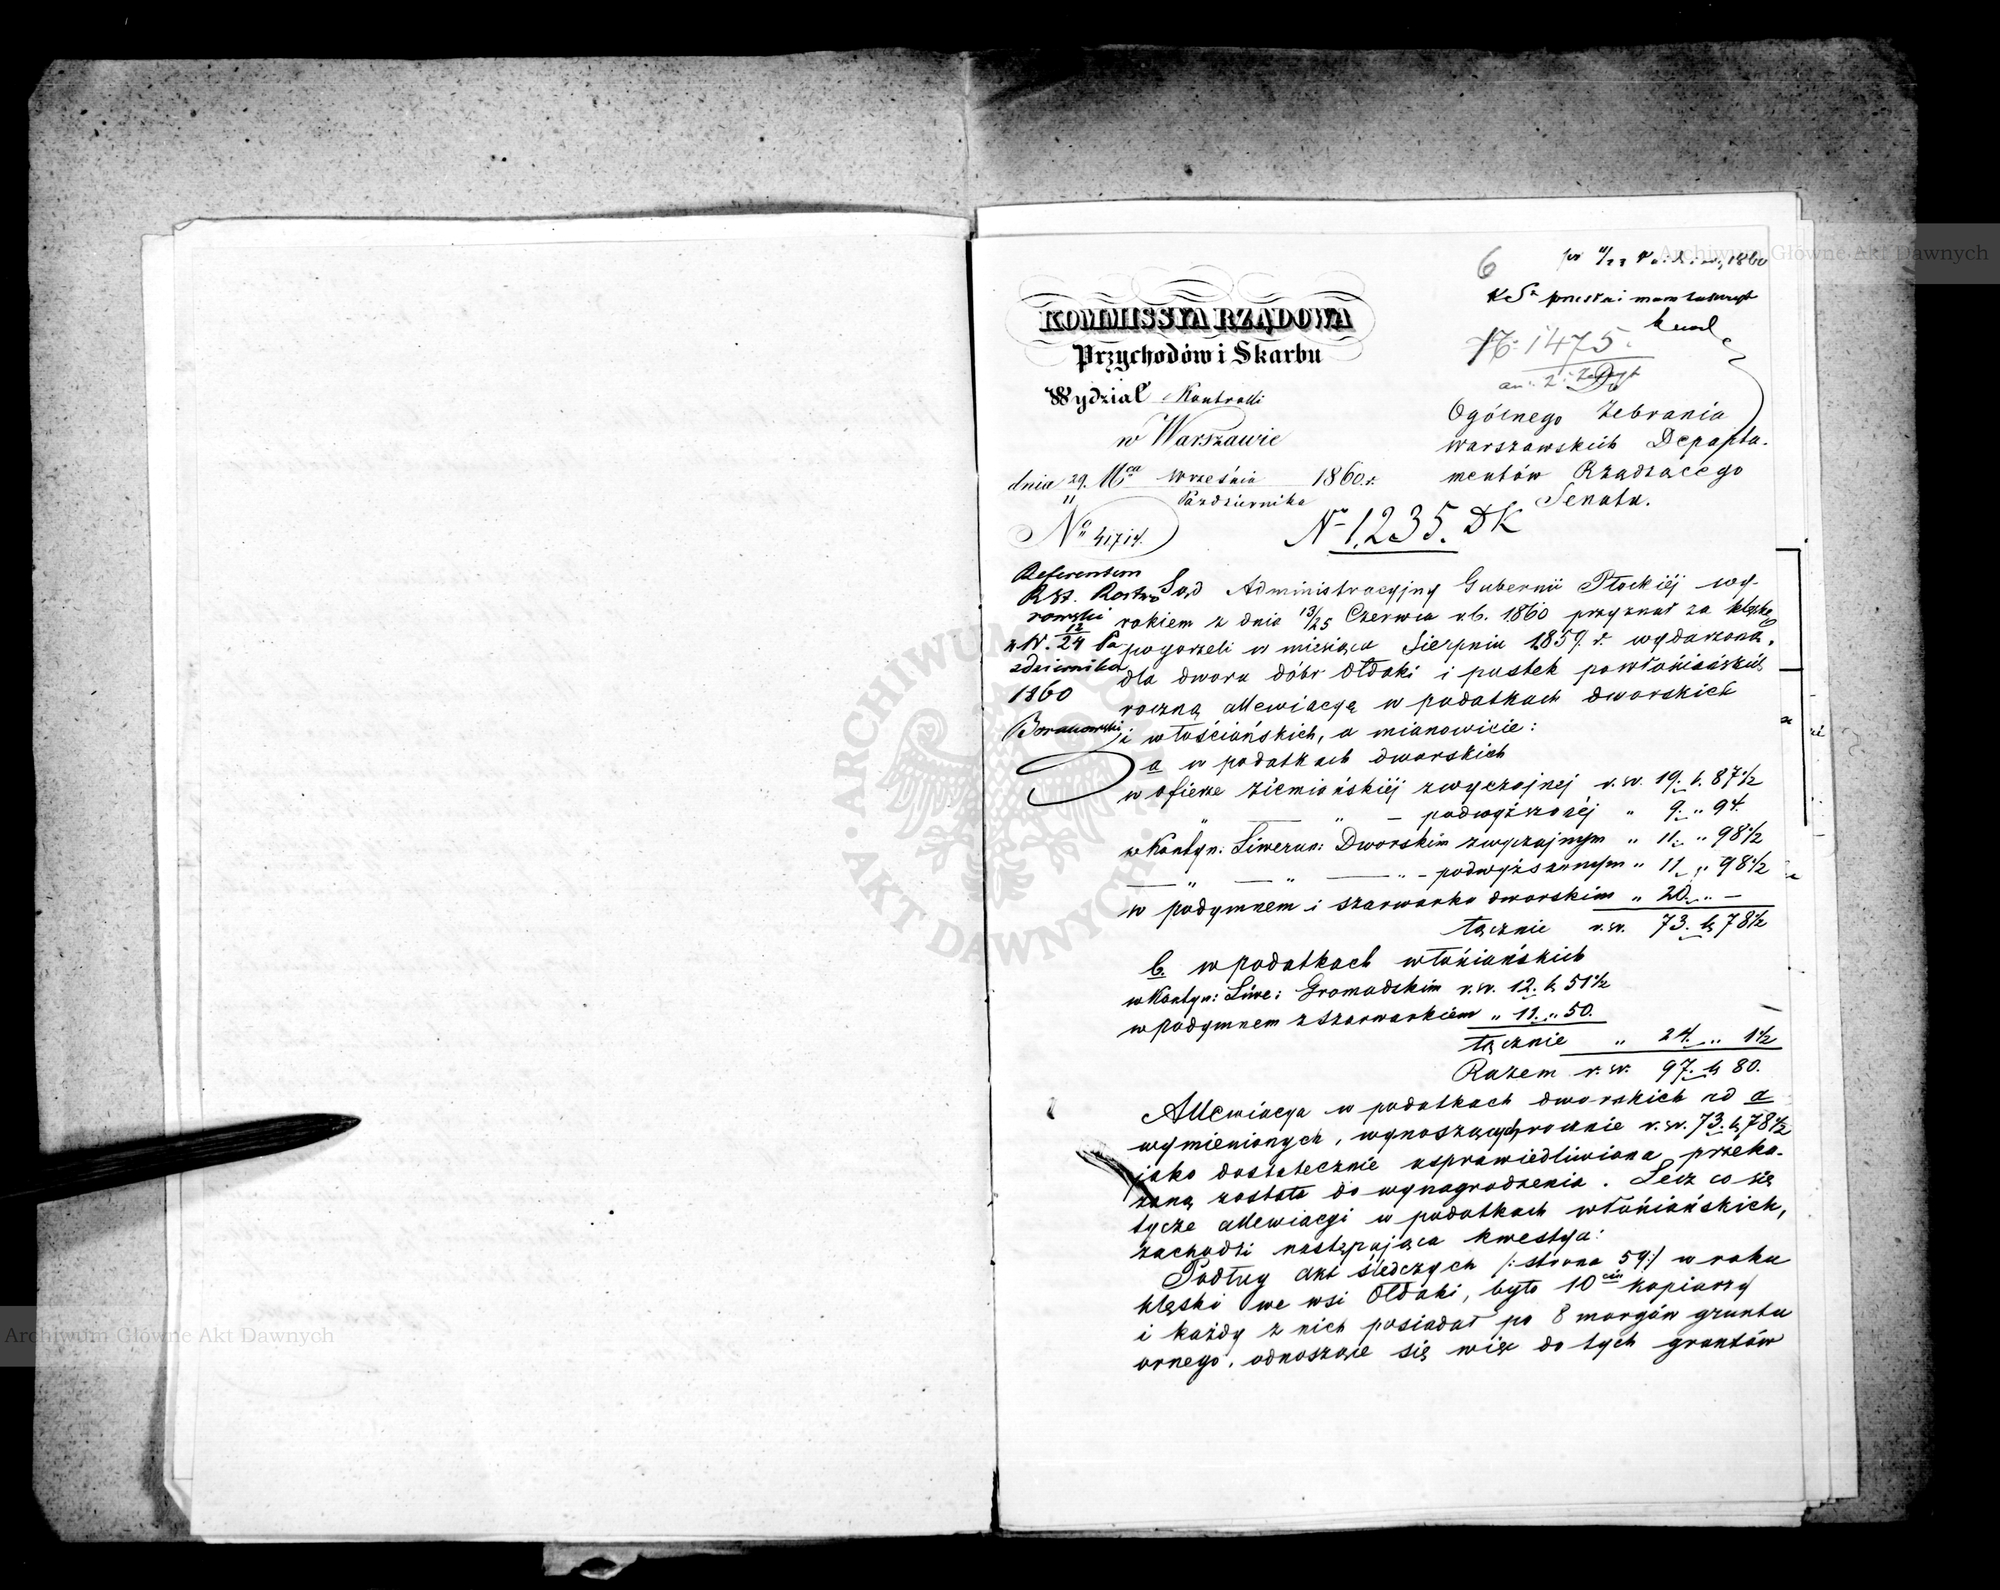 6
1860
KOMMISSYA RZĄDOWA
Przychodów i Skarbu
Wydział Kontrolli
w Warszawie
dnia 29. Mca Września 1860 r.
11 Października
No 41714.
No 1475.
Do
Ogólnego Zebrania
Warszawskich Departa-
mentów Rządzącego
Senatu.
No 1,235. DK
Referentem
Rostwo
rowski
12/24 Pa
zdziernika
1860
Sąd Administracyjny Gubernii Płockiéj wy-
rokiem z dnia 13/25 Czerwca r.b. 1860 przyznał za klęskę
pogorzeli w miesiącu Sierpniu 1859 r. wydarzoną,
dla dworu dóbr Ołdaki i pustek powłościańskich
roczną allewiacyą w podatkach dworskich
i włościańskich, a mianowicie:
a w podatkach dworskich
w ofierze ziemiańskiéj zwyczajnej r.sr. 19. k. 87 1/2
" — " — podwyższonéj " 9. " 94
w Kontyn: Liwerun: Dworskim zwyczajnym " 11. " 98 1/2
— " — " — " — podwyższonym " 11. " 98 1/2
w podymnem i szarwarku dworskim " 20. " —
łącznie r.sr. 73. k. 78 1/2
b. w podatkach włościańskich
w Kontyn: Liwe: Gromadzkim r.sr. 12. k. 51 1/2
w podymnem z szarwarkiem " 11. " 50.
łącznie " 24. " 1 1/2
Razem r.sr. 97. k. 80.
Allewiacya w podatkach dworskich ad a
wymienionych, wynoszących rocznie r.sr. 73. k. 78 1/2
jako dostatecznie usprawiedliwiona przeka-
zaną została do wynagrodzenia. Lecz co się
tycze allewiacyi w podatkach włościańskich,
zachodzi następująca kwestya:
Podług akt śledczych /: strona 59 :/ w roku
klęski we wsi Ołdaki, było 10ciu kopiarzy
i każdy z nich posiadał po 8 morgów gruntu
ornego, odnosząc się więc do tych gruntów
ARCHIWUM GŁÓWNE AKT DAWNYCH
Archiwum Główne Akt Dawnych
Archiwum Główne Akt Dawnych